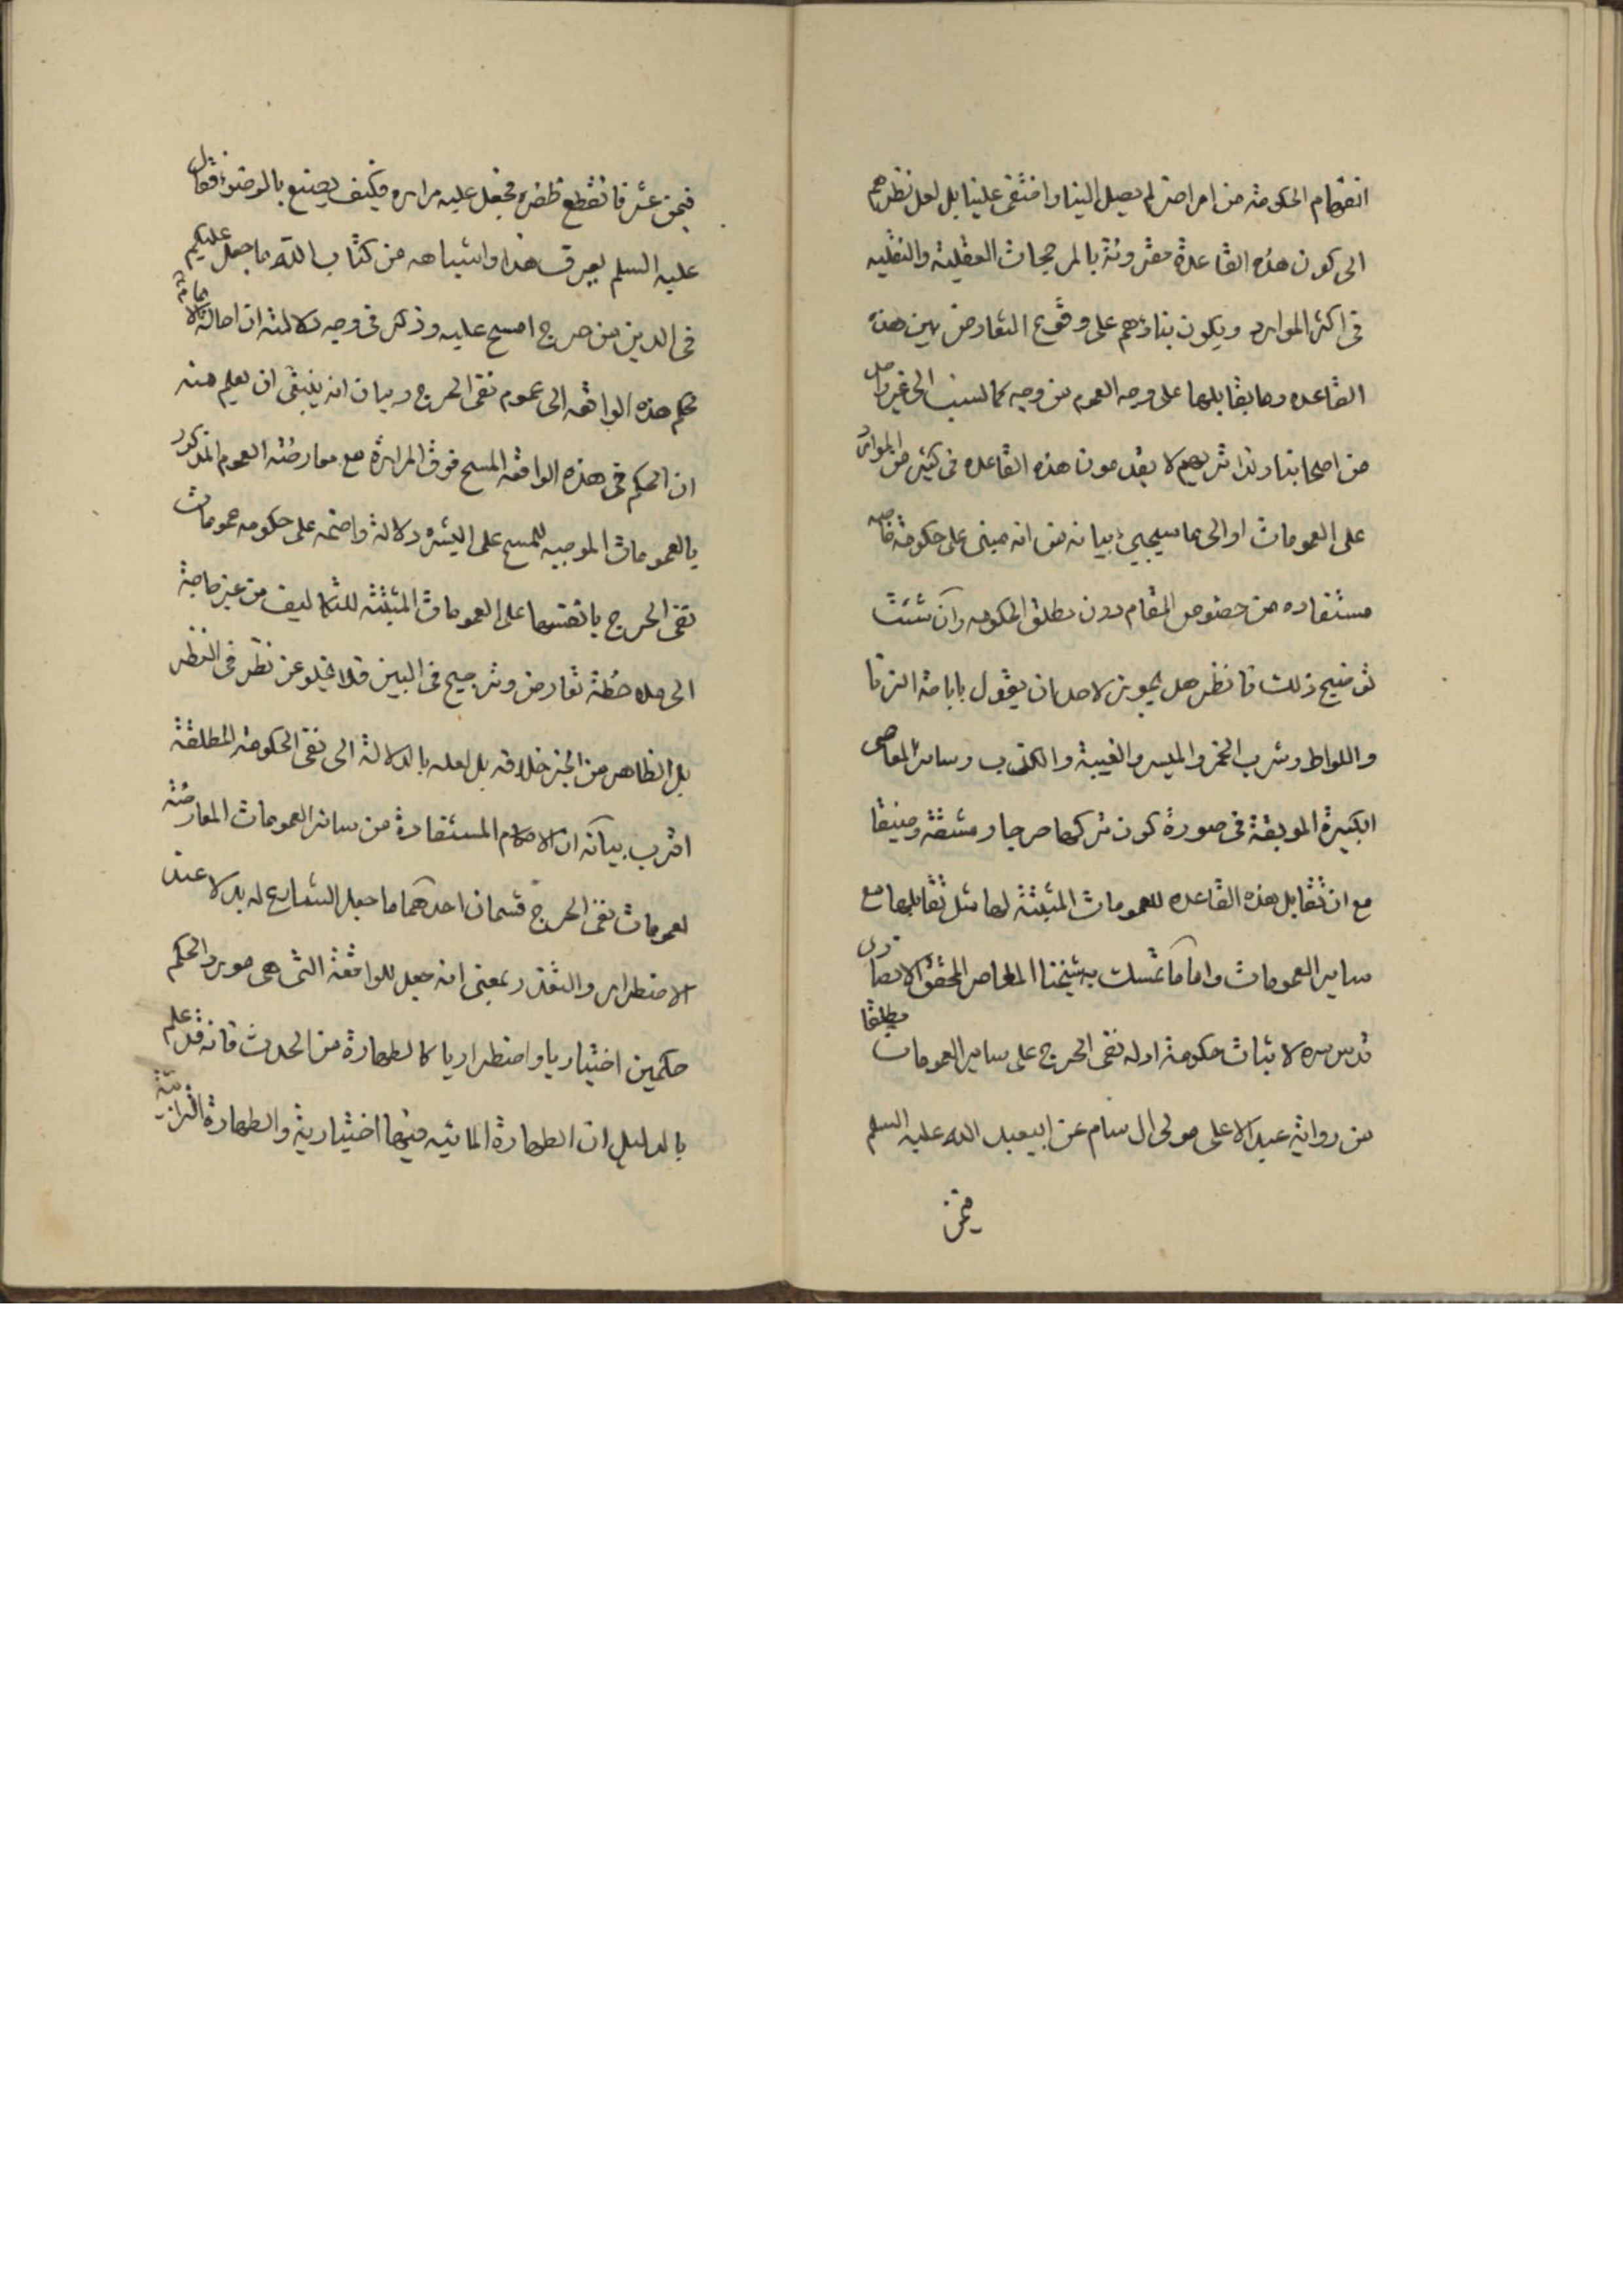 انفهام الحكومة من امر اخر لم يصل الينا واختفى علينا بل لعل نظرهم
الى كون هذه القاعدة مقرونة بالمرجحات العقلية والنقليه
فى اكثر الموارد ويكون بناؤهم على وقوع التعارض بين هذه
القاعده وما يقابلها على وجه العموم من وجه كما نسب الى غير واحد
من اصحابنا ولذا تريهم لا يقدمون هذه القاعده فى كثير من الموارد
على العمومات او الى ما سيجيء بيانه من انه مبنى على حكومة خاصه
مستفاده من خصوص المقام دون مطلق الحكومه وان شئت
توضيح ذلك فانظر هل يجوز لاحد ان يقول باباحة الزنا
واللواط وشرب الخمر والميسر والغيبة والكذب وسائر المعاصى
الكبيرة الموبقة فى صورة كون تركها حرجا ومشقة وضيقا
مع ان تقابل هذه القاعده للعمومات المثبتة لها مثل تقابلها مع
ساير العمومات واما ما تمسك به شيخنا المعاصر المحقق الانصارى
قدس سره لاثبات حكومة ادله نفى الحرج على ساير العمومات مطلقا
من رواية عبد الاعلى مولى ال سام عن ابيعبد الله عليه السلم
فيمن
فيمن عثر فانقطع ظفره فجعل عليه مراره فكيف يصنع بالوضوء فقال
عليه السلم يعرف هذا واشباهه من كتاب الله ما جعل عليكم
فى الدين من حرج امسح عليه وذكر فى وجه دلالته ان احالة الامام
حكم هذه الواقعه الى عموم نفى الحرج وبيان انه ينبغى ان يعلم منه
ان الحكم فى هذه الواقعه المسح فوق المرارة مع معارضته العموم المذكور
بالعمومات الموجبه للمسح على البشره دلالة واضحه على حكومه عمومات
نفى الحرج بانفسها على العمومات المثبتة للتكاليف من غير حاجة
الى ملاحظة تعارض وترجيح فى البين فلا يخلو عن نظر فى النظر
بل الظاهر من الخبر خلافه بل لعله بالدلالة الى نفى الحكومة المطلقة
اقرب بيانه ان الاحكام المستفادة من سائر العمومات المعارضة
لعمومات نفى الحرج قسمان احدهما ما جعل الشارع له بدلا عند
الاضطرار والتعذر بمعنى انه جعل للواقعة التى هى مورد الحكم
حكمين اختياريا واضطراريا كالطهارة من الحدث فانه قد علم
بالدليل ان الطهارة المائيه فيها اختيارية والطهارة الترابية